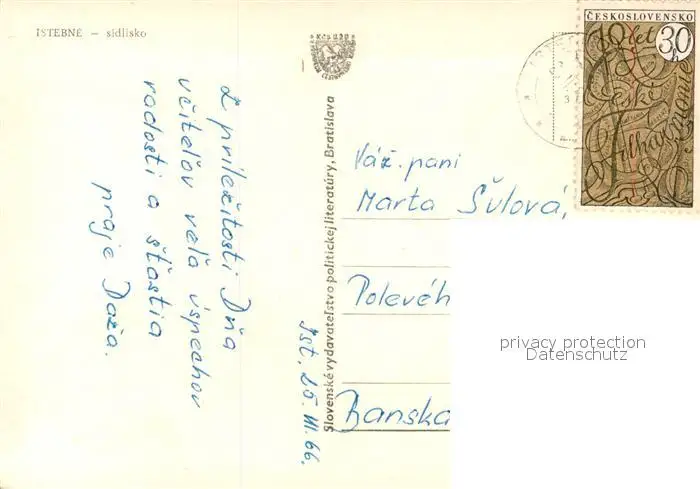 ISTEBNÉ – sídlisko
Z príležitosti Dňa
učiteľov veľa úspechov
radosti a šťastia
praje Daša.
Ist. 25. III. 66.
Slovenské vydavateľstvo politickej literatúry, Bratislava
ČESKOSLOVENSKO
30 h
70 let
České
Filharmonie
Váž. pani
Marta Šulová,
Polevéh
Banska
privacy protection
Datenschutz